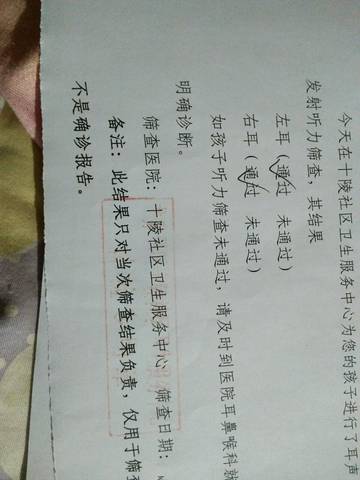 今天在十陵社区卫生服务中心为您的孩子进行了耳声
发射听力筛查，其结果
左耳（通过 未通过）
右耳（通过 未通过）
如孩子听力筛查未通过，请及时到医院耳鼻喉科就
明确诊断。
筛查医院：十陵社区卫生服务中心 筛查日期：
备注：此结果只对当次筛查结果负责，仅用于筛查
不是确诊报告。